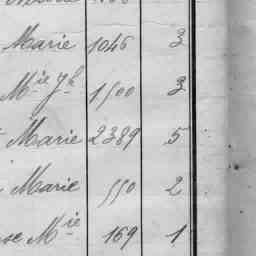 Marie 1046 3
Mie Jh 1500 3
Marie 2389 5
Marie 550 2
se Mie 169 1